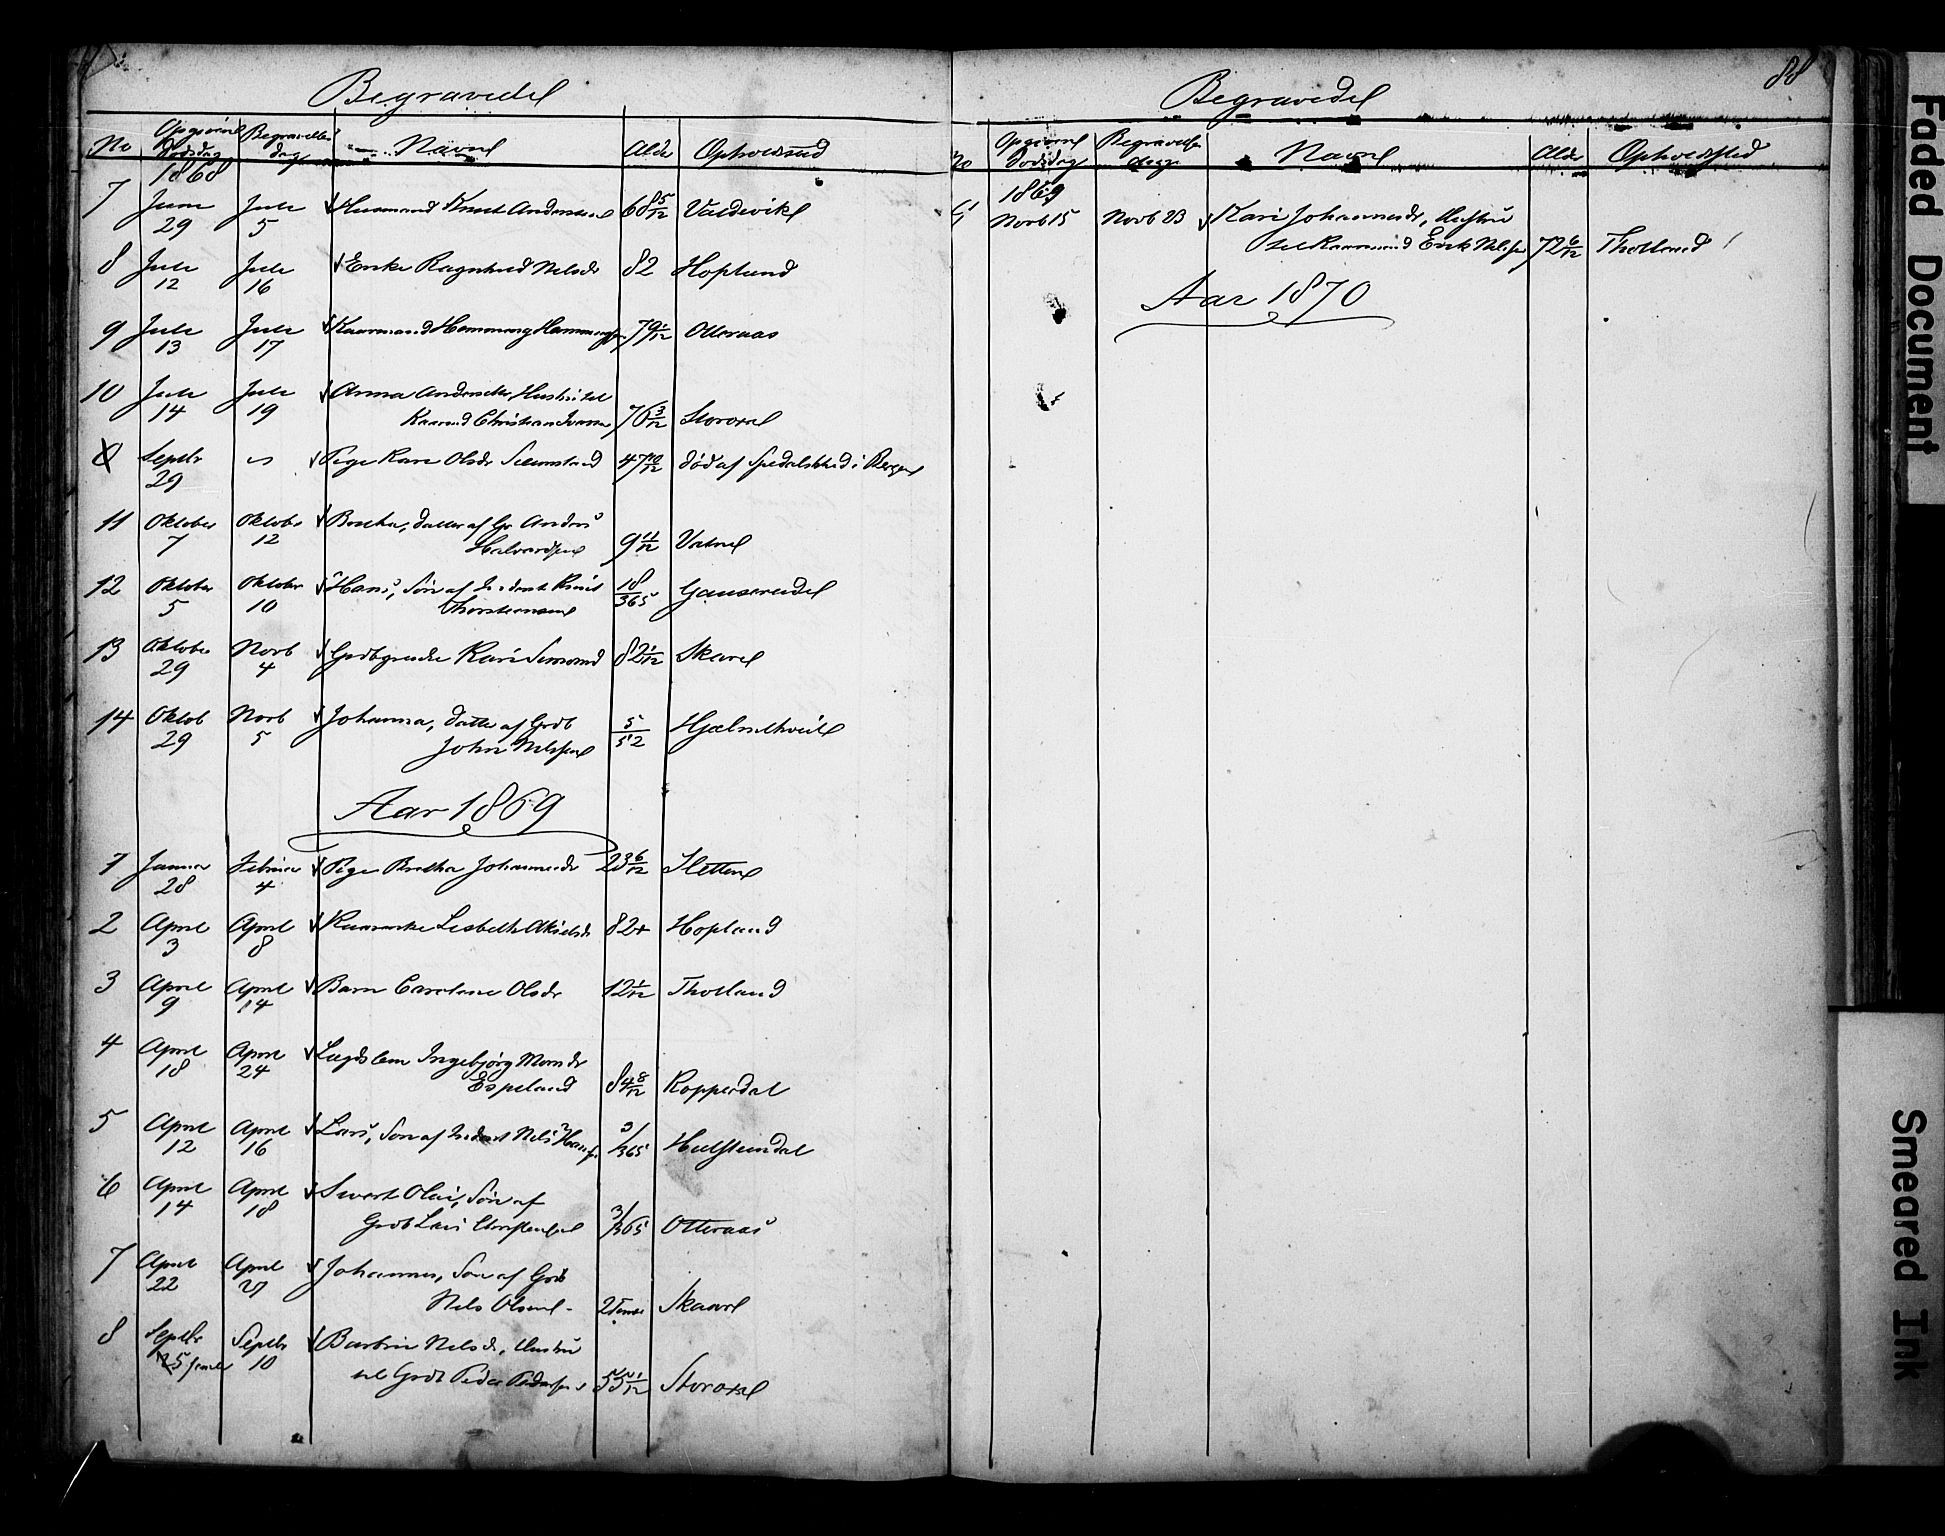 Begravede
No Opgivne Dødsdag Begravelses dag Navne Alder Opholdssted
1868
7 Juni 29 Juli 5 Huusmand Knud Andersen 68 5/12 Valdevik
8 Juli 12 Juli 16 Enke Ragnhild Nilsdr 82 Hopland
9 Juli 13 Juli 17 Kaarmand Hemming Hemmings 79 1/12 Otteraas
10 Juli 14 Juli 19 Anna Andersdtr Hustru til
Kaarmd Christian Iversen 76 3/12 Storoxel
Septbr 29 " Pige Kari Olsdr 47 10/12 død af Spedalskhed i Bergen
11 Oktober 7 Oktobr 12 Brethe, datter af Gr Anders
Halvardsen 9 11/12 Vatne
12 Oktober 5 Oktober 10 Hans, Søn af Inderst Knud
Thorstensen 18/365 Gauserudel
13 Oktober 29 Novb 4 Grdbrgenke Kari Simonsd 82 1/12 Skare
14 Oktob 29 Novb 5 Johanna, datter af Grdb
John Nilssen 5/52 Hjelmekveile
Aar 1869
1 Januar 28 Februar 4 Pige Brethe Johannesdr 23 6/12 Sletten
2 April 3 April 8 Kaarenke Lisbeth Akselsdr 82 Hopland
3 April 9 April 14 Barn Caroline Olsdr 12 1/12 Thotland
4 April 18 April 24 Lægdslem Ingebjørg Monsdr
Espeland 84 8/12 Kopperdal
5 April 12 April 16 Lars, Søn af Inderst Nils Hans 3/365 Hulsteindal
6 April 14 April 18 Sivert Olai, Søn af
Grdb Lars Christensen 3/365 Otteraas
7 April 22 April 27 Johannes, Søn af Grdb
Nils Olsen - 2 Timer Skaare
8 Septbr 5 Septbr 10 Barbra Nilsdr, Hustru
til Grdb Peder Pedersen 55 1/12 Storoxel
88
Begravede
No Opgivne Dødsdag Begravelses dage Navne Alder Opholdssted
1869
9 Novb 15 Novb 23 Kari Johannesdr, Hustru
til Kaarmand Erik Nilssen 72 6/12 Thotland
Aar 1870
Faded Document
Smeared Ink